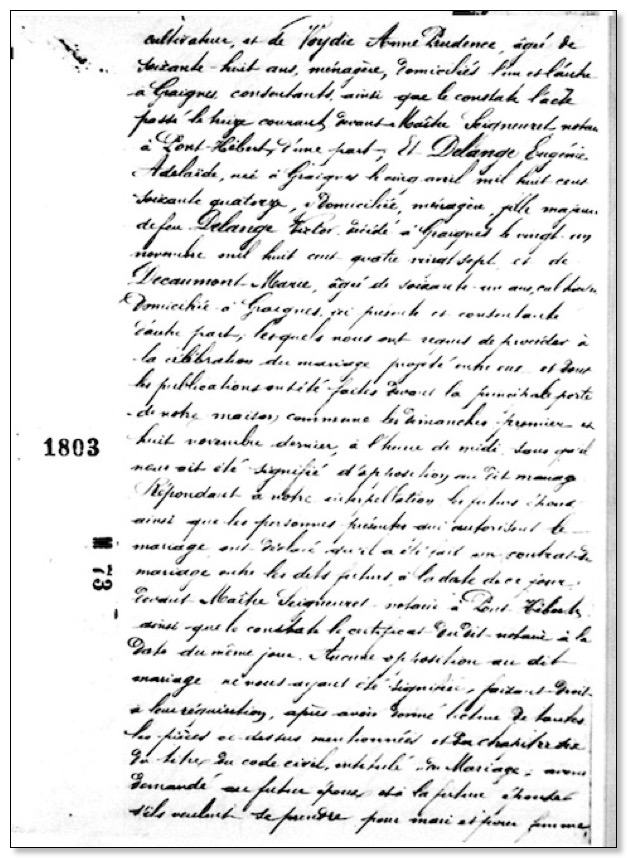 cultivateur, et de Voydie Anne Prudence, âgée de
soixante-huit ans, ménagère, domiciliés l'un et l'autre
à Graignes, consentants, ainsi que le constate l'acte
passé le treize courant, devant Maître Seigneuret, notaire
à Pont-Hébert, d'une part, Et Delange Eugénie
Adelaïde, née à Graignes le cinq avril mil huit cent
soixante quatorze, domiciliée, ménagère, fille majeure
de feu Delange Victor, décédé à Graignes le vingt un
novembre mil huit cent quatre vingt sept, et de
Decaumont Marie, âgée de soixante-un ans,
domiciliée à Graignes, ici présente et consentante
d'autre part; lesquels nous ont requis de procéder à
la célébration du mariage projeté entre eux et dont
les publications ont été faites devant la principale porte
de notre maison commune les dimanches premier et
huit novembre dernier, à l'heure de midi, sans qu'il
nous ait été signifié d'opposition au dit mariage
1803
Répondant à notre interpellation les futurs époux
ainsi que les personnes présentes qui autorisent le
mariage ont déclaré qu'il a été fait un contrat de
mariage entre les dits futurs à la date de ce jour,
devant Maître Seigneuret notaire à Pont Hébert,
ainsi que le constate le certificat du dit notaire à la
73
date du même jour. Aucune opposition au dit
mariage ne nous ayant été signifiée, faisant droit
à leur réquisition, après avoir donné lecture de toutes
les pièces ci-dessus mentionnées et du chapitre six
du titre du code civil, intitulé du Mariage, avons
demandé au futur époux et à la future épouse
s'ils veulent se prendre pour mari et pour femme,